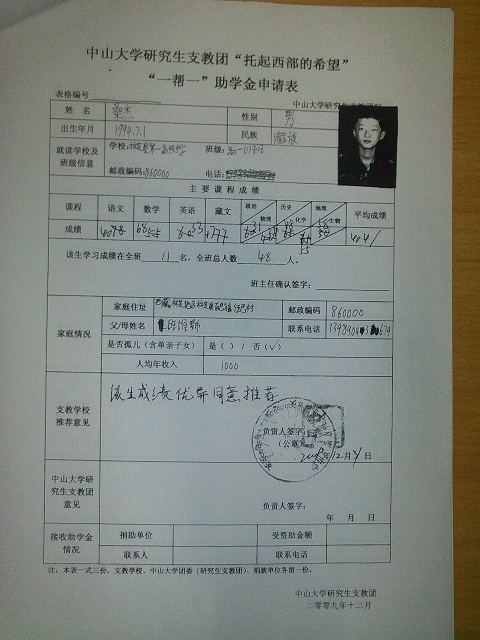 中山大学研究生支教团“托起西部的希望”
“一帮一”助学金申请表
表格编号
中山大学研究生支教团
姓 名 桑杰 性别 男
出生年月 1994.7.1 民族 藏族
就读学校及班级信息 学校: 班级:
邮政编码:860000 电话:
主要课程成绩
课程 语文 数学 英语 藏文 政治 物理 历史 化学 地理 生物 平均成绩
成绩
该生学习成绩在全班 11 名。全班总人数 48 人。
班主任确认签字:
家庭情况 家庭住址 邮政编码 860000
父/母姓名 联系电话
是否孤儿(含单亲子女) 是( ) / 否(√)
人均年收入 1000
支教学校推荐意见 该生成绩优异同意推荐
负责人签字:
(公章)
年12月 日
中山大学研究生支教团意见
负责人签字:
年 月 日
接收助学金情况 捐助单位 受资助金额
联系人 联系电话
注:本表一式三份,支教学校、中山大学团委(研究生支教团)、捐款单位各留一份。
中山大学研究生支教团
二零零九年十二月